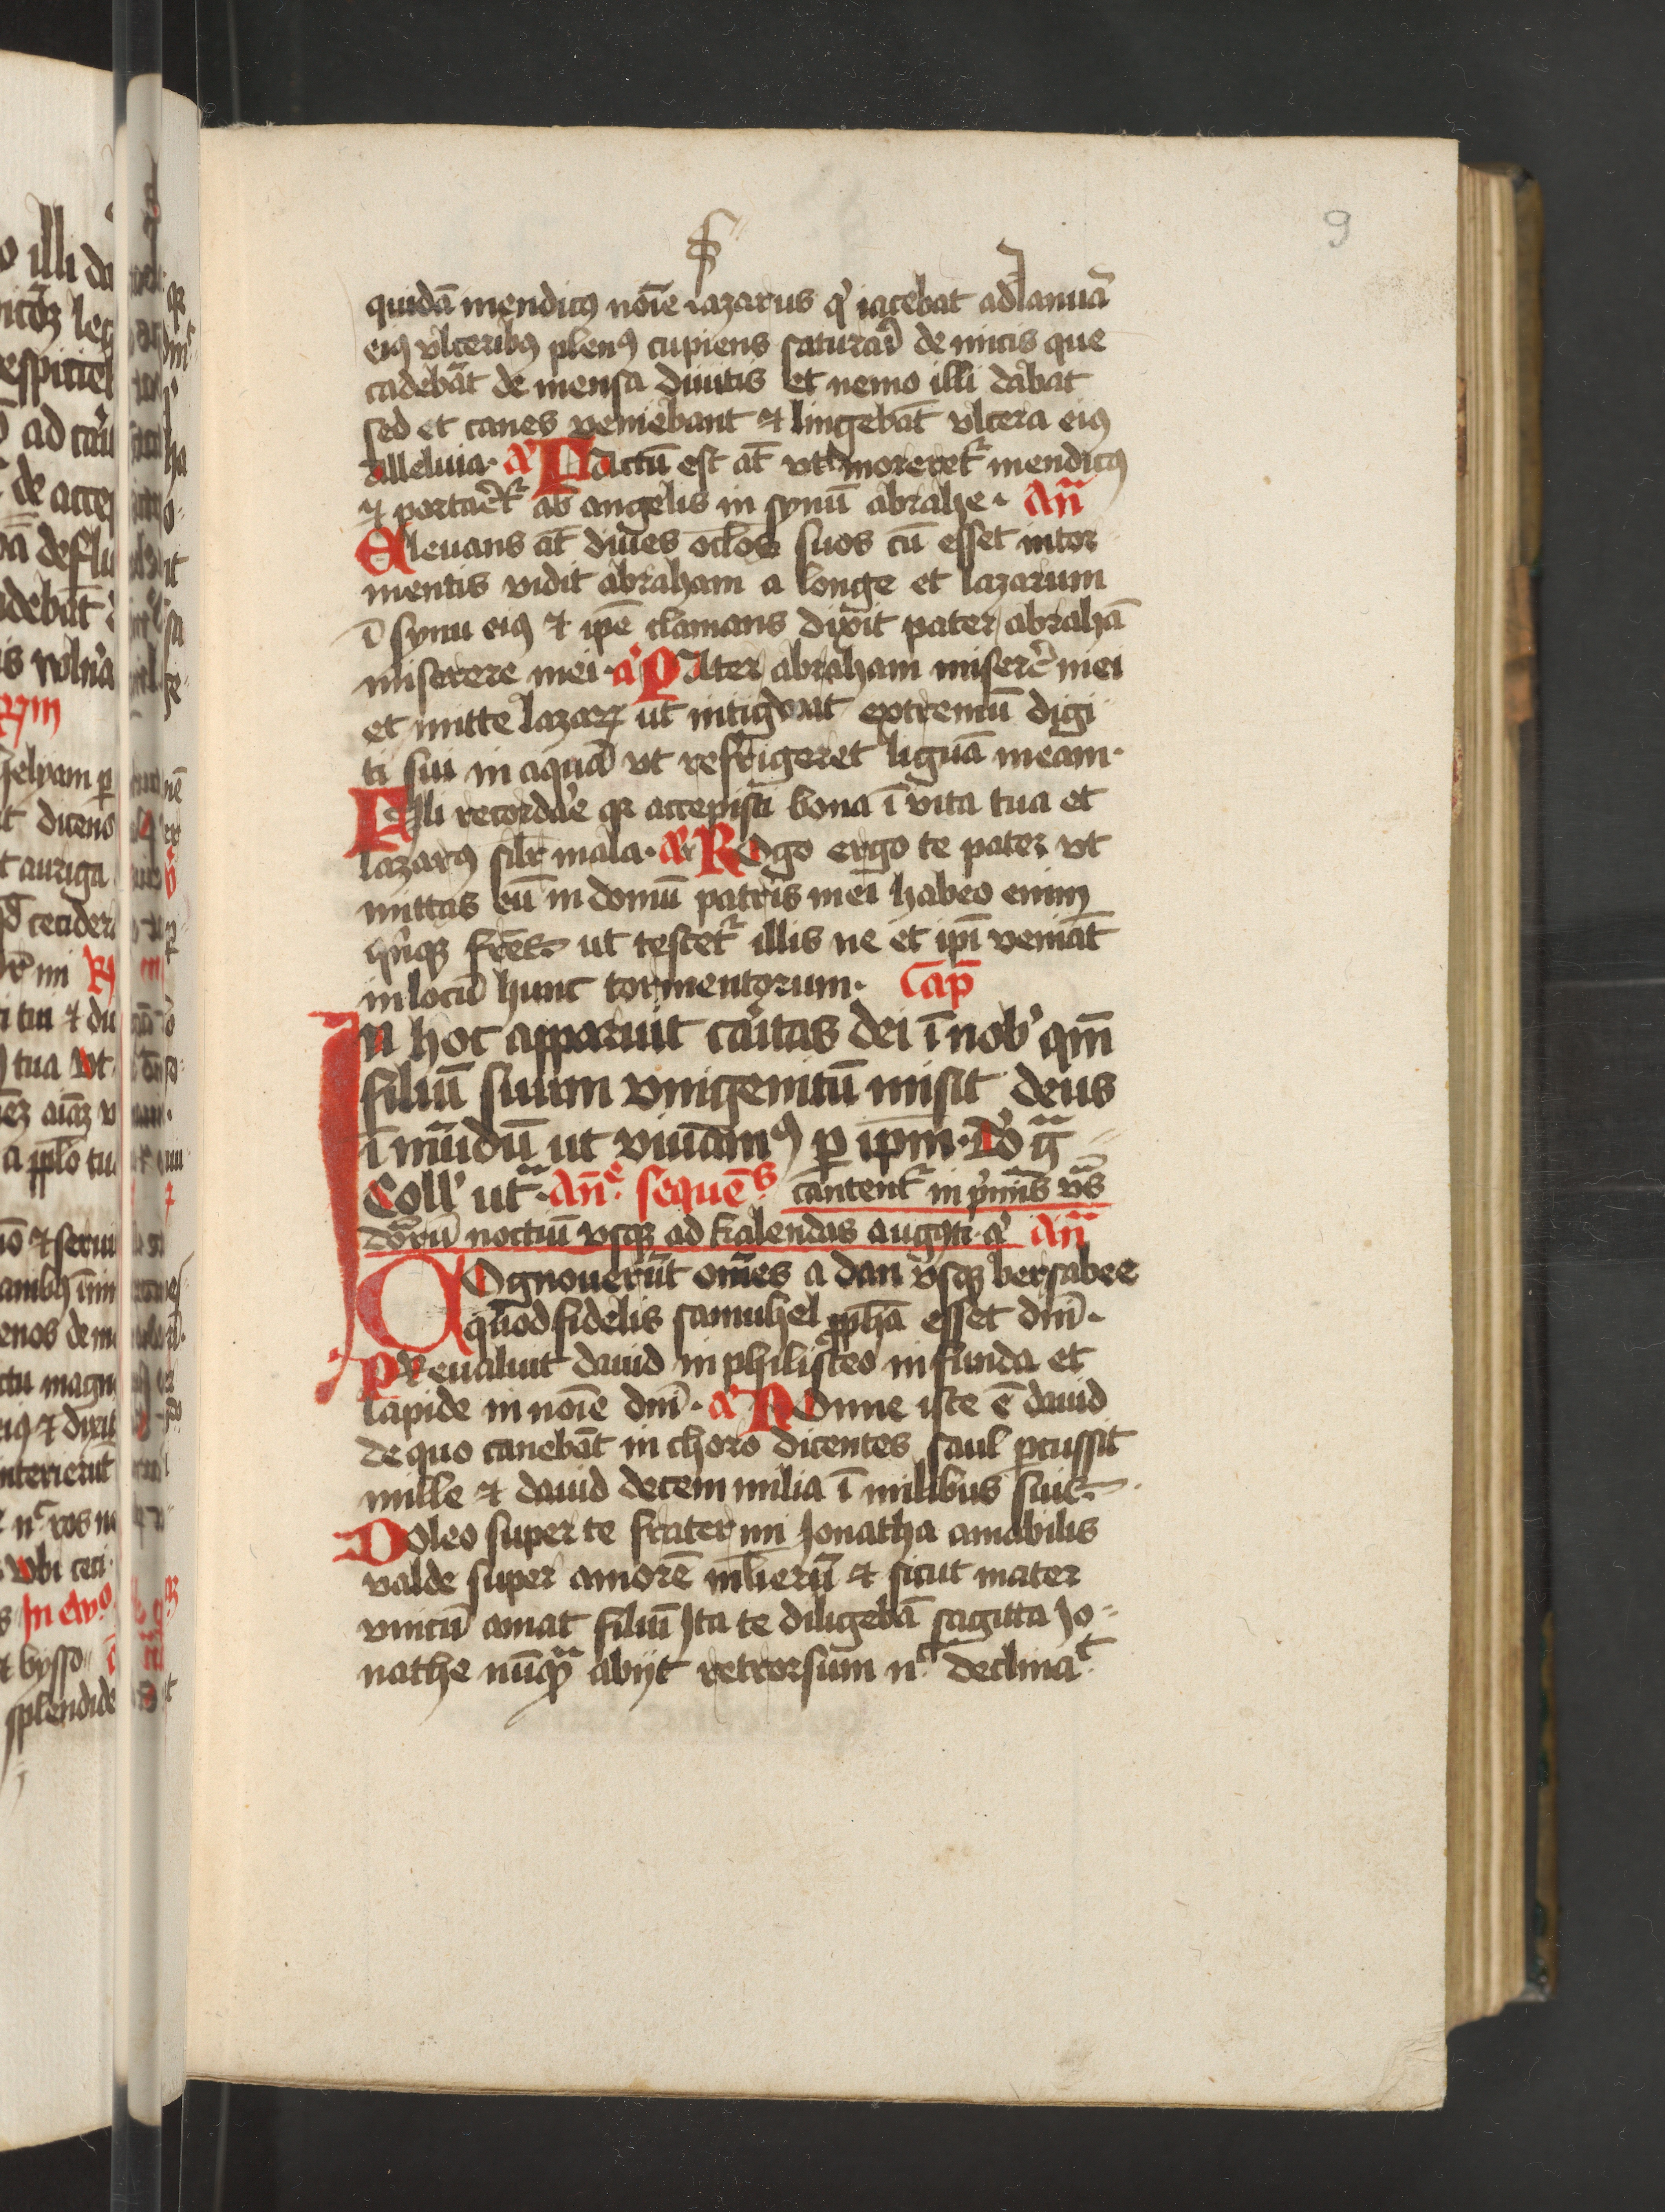 9
quidā mendicꝯ noīe lazarus qͥ iacebat ad Ianuā
eiꝯ vlceribꝯ plenꝯ cupiens saturari de micis que
cadebāt de mensa diuitis et nemo illi dabat
sed et canes veniebant ⁊ lingebāt vlcera eiꝯ
alleluia. Factū est āt vt moreret᷑ mendicꝯ
⁊ portaret᷑ ab angelis in synū abrahe. Añ
Eleuans āt diues oc̄los suos cū esset in tor
mentis vidit abraham a longe et lazarum
ī synu eiꝯ ⁊ ip̄e clamans dixit pater abrahā
miserere mei. a᷑ Pater abraham miserere mei
et mitte lazaꝝ ut intigwat extremū digi
ti sui in aquā vt refrigeret liguā meam.
Fili recordare qꝛ accepisti bona ī vita tua et
lazarꝯ silr̄ mala. a᷑ Rogo ergo te pater vt
mittas eū in domū patris mei habeo enim
qͥnqꝫ fr̄es. ut testet᷑ illis ne et ip̄i veniāt
in locū hunc tormentorum. Cap̄
In hoc apparuit caritas dei ī nob᷒ qm̄
filiū suum vnigenitū misit deus
ī mūdū ut viuamꝯ ꝑ ip̄m. Do gr̄a
Coll᷒ utͣ. Añe. sequēs cantent᷑ in pͥmis vͣs
dn̄icarū noctiū vsqꝫ ad kalendas augꝯti. a᷑ Añ
Cognouerūt om̄es a dan vsqꝫ bersabee
quod fidelis samuhel ꝓpha esset dn̄i.
Preualuit dauid in philisteo in funda et
lapide in noīe dn̄i. a᷑ Nonne iste ē dauid
de quo canebāt in choro dicentes saul ꝑcussit
mille ⁊ dauid decem milia ī milibus suis.
Doleo super te frater mi Jonatha amabilis
valde super amorē ml̄ierū ⁊ sicut mater
vnicū amat filiū Ita te diligebā sagitta Jo-
nathe nūqͣ abijt retrorsum nͨ declinaͭ